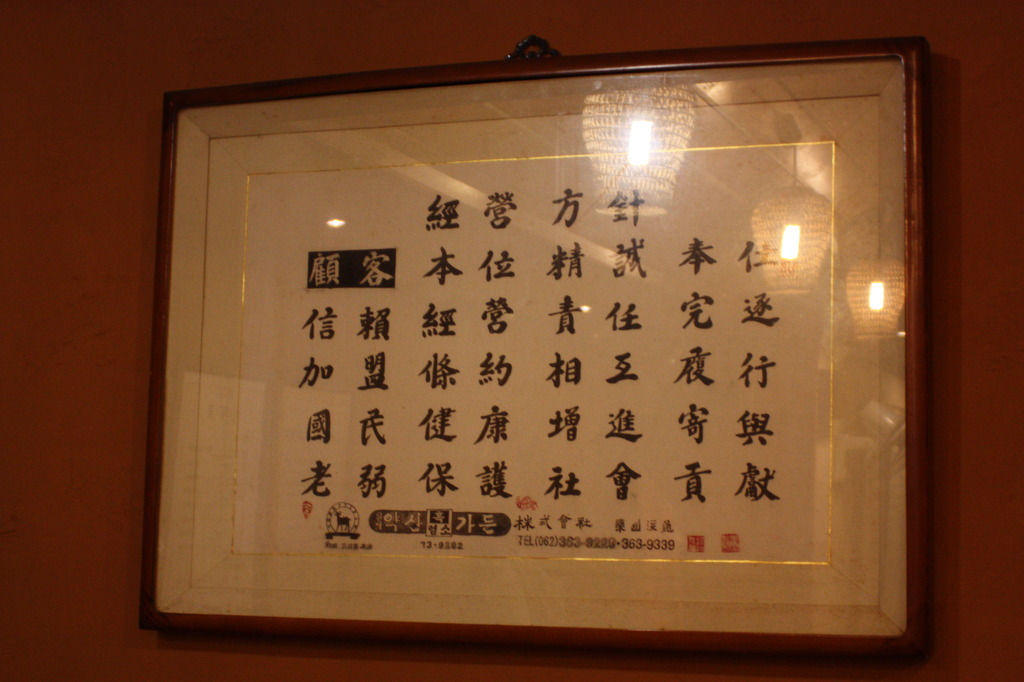 經營方針
顧客本位精誠奉仕
信賴經營責任完遂
加盟條約相互履行
國民健康增進寄與
老弱保護社會貢獻
약산흑염소가든 株式會社
TEL(062)363-9229·363-9339